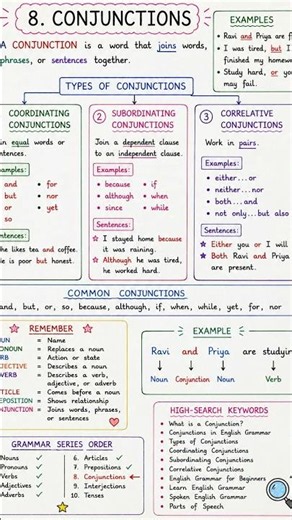 8. CONJUNCTIONS
A CONJUNCTION is a word that joins words,
phrases, or sentences together.
EXAMPLES
Ravi and Priya are fri
I was tired, but I
finished my homew
Study hard, or yo
may fail.
TYPES OF CONJUNCTIONS
COORDINATING
CONJUNCTIONS
in equal words or
entences.
Examples:
and
but
or
so
• for
• nor
• yet
Sentences:
he likes tea and coffee.
e is poor but honest.
② SUBORDINATING
CONJUNCTIONS
Join a dependent clause
to an independent clause.
Examples:
• because
• although
• since
• if
• when
• while
Sentences:
☆ I stayed home because
it was raining.
☆ Although he was tired,
he worked hard.
③ CORRELATIVE
CONJUNCTIONS
Work in pairs.
Examples:
• either...or
• neither...nor
• both...and
• not only...but also
Sentences:
★ Either you or I will
★ Both Ravi and Priya
are present.
COMMON CONJUNCTIONS
and, but, or, so, because, although, if, when, while, yet, for, nor
REMEMBER
NOUN = Name
PRONOUN = Replaces a noun
VERB = Action or state
ADJECTIVE = Describes a noun
ADVERB = Describes a verb,
adjective, or adverb
ARTICLE = Comes before a noun
PREPOSITION = Shows relationship
CONJUNCTION = Joins words, phrases,
or sentences
EXAMPLE
Ravi and Priya are studyin
Noun Conjunction Noun Verb
GRAMMAR SERIES ORDER
Nouns ✓
Pronouns ✓
Verbs ✓
Adjectives ✓
Adverbs ✓
6. Articles ✓
7. Prepositions ✓
8. Conjunctions ←
9. Interjections
10. Tenses
HIGH-SEARCH KEYWORDS
• What is a Conjunction?
• Conjunctions in English Grammar
• Types of Conjunctions
• Coordinating Conjunctions
• Subordinating Conjunctions
• Correlative Conjunctions
• English Grammar for Beginners
• Learn English Grammar
• Spoken English Grammar
• Parts of Speech